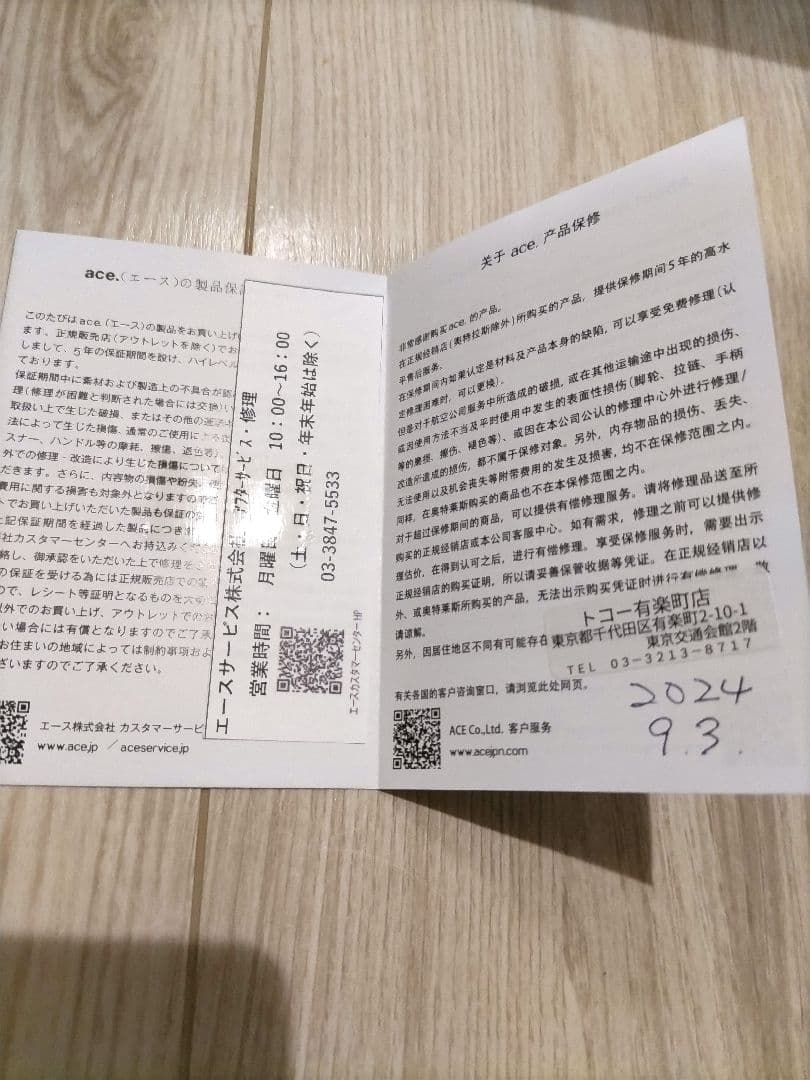 ace.(エース)の製品保
このたびはace.(エース)の製品をお買い上げ
ます。正規販売店(アウトレットを除く)でお
しまして、5年の保証期間を設け、ハイレベル
ております。
保証期間中に素材および製造上の不具合が認
理(修理が困難と判断された場合には交換)い
取扱い上で生じた破損、またはその他の運送
法によって生じた損傷、通常のご使用による
スナー、ハンドル等の摩耗、擦傷、退色等)、
外での修理・改造により生じた損傷について
だきます。さらに、内容物の損傷や紛失、使
費用に関する損害も対象外となりますので
トでお買い上げいただいた製品も保証の
記保証期間を経過した製品につき
社カスタマーセンターへお持込みく
絡し、御承認をいただいた上で修理を
の保証を受ける為には正規販売店での
ので、レシート等証明となるものを大切
以外でのお買い上げ、アウトレットでの
い場合には有償となりますのでご了承
お住まいの地域によっては制約事項およ
ざいますのでご了承ください。
エース株式会社 カスタマーサービ
www.ace.jp / aceservice.jp
エースサービス株式会社 アフターサービス・修理
営業時間: 月曜日 曜日 10:00~16:00
(土・日・祝日・年末年始は除く)
03-3847-5533
エースカスタマーセンターHP
关于 ace. 产品保修
非常感谢购买ace. 的产品。
在正规经销店(奥特拉斯除外)所购买的产品，提供保修期间5年的高水
平售后服务。
在保修期内如果认定是材料及产品本身的缺陷，可以享受免费修理(认
定修理困难时，可以更换)。
但是对于航空公司服务中所造成的破损，或在其他运输途中出现的损伤、
或因使用方法不当及平时使用中发生的表面性损伤(脚轮、拉链、手柄
等的磨损、擦伤、褪色等)、或因在本公司公认的修理中心外进行修理/
改造所造成的损伤，都不属于保修对象。另外，内存物品的损伤、丢失、
无法使用以及机会丧失等附带费用的发生及损害，均不在保修范围之内。
同样，在奥特莱斯购买的商品也不在本保修范围之内。
对于超过保修期间的商品，可以提供有偿修理服务。请将修理品送至所
购买的正规经销店或本公司客服中心。如有需求，修理之前可以提供修
理估价，在得到认可之后，进行有偿修理。享受保修服务时，需要出示
正规经销店的购买证明，所以请妥善保管收据等凭证。在正规经销店以
外、或奥特莱斯所购买的产品，无法出示购买凭证时进行有偿修理，敬
请谅解。
另外，因居住地区不同有可能存在
トコー有楽町店
東京都千代田区有楽町2-10-1
東京交通会館2階
TEL 03-3213-8717
有关各国的客户咨询窗口，请浏览此处网页。
ACE Co.,Ltd. 客户服务
www.acejpn.com
2024
9.3.